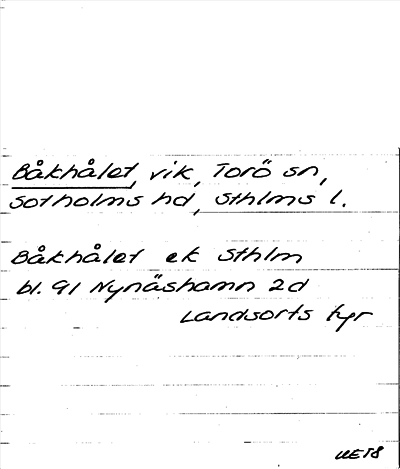 Båkhålet, vik, Torö sn,
Sotholms hd, Sthlms l.
Båkhålet ek Sthlm
bl. 91 Nynäshamn 2d
Landsorts fyr